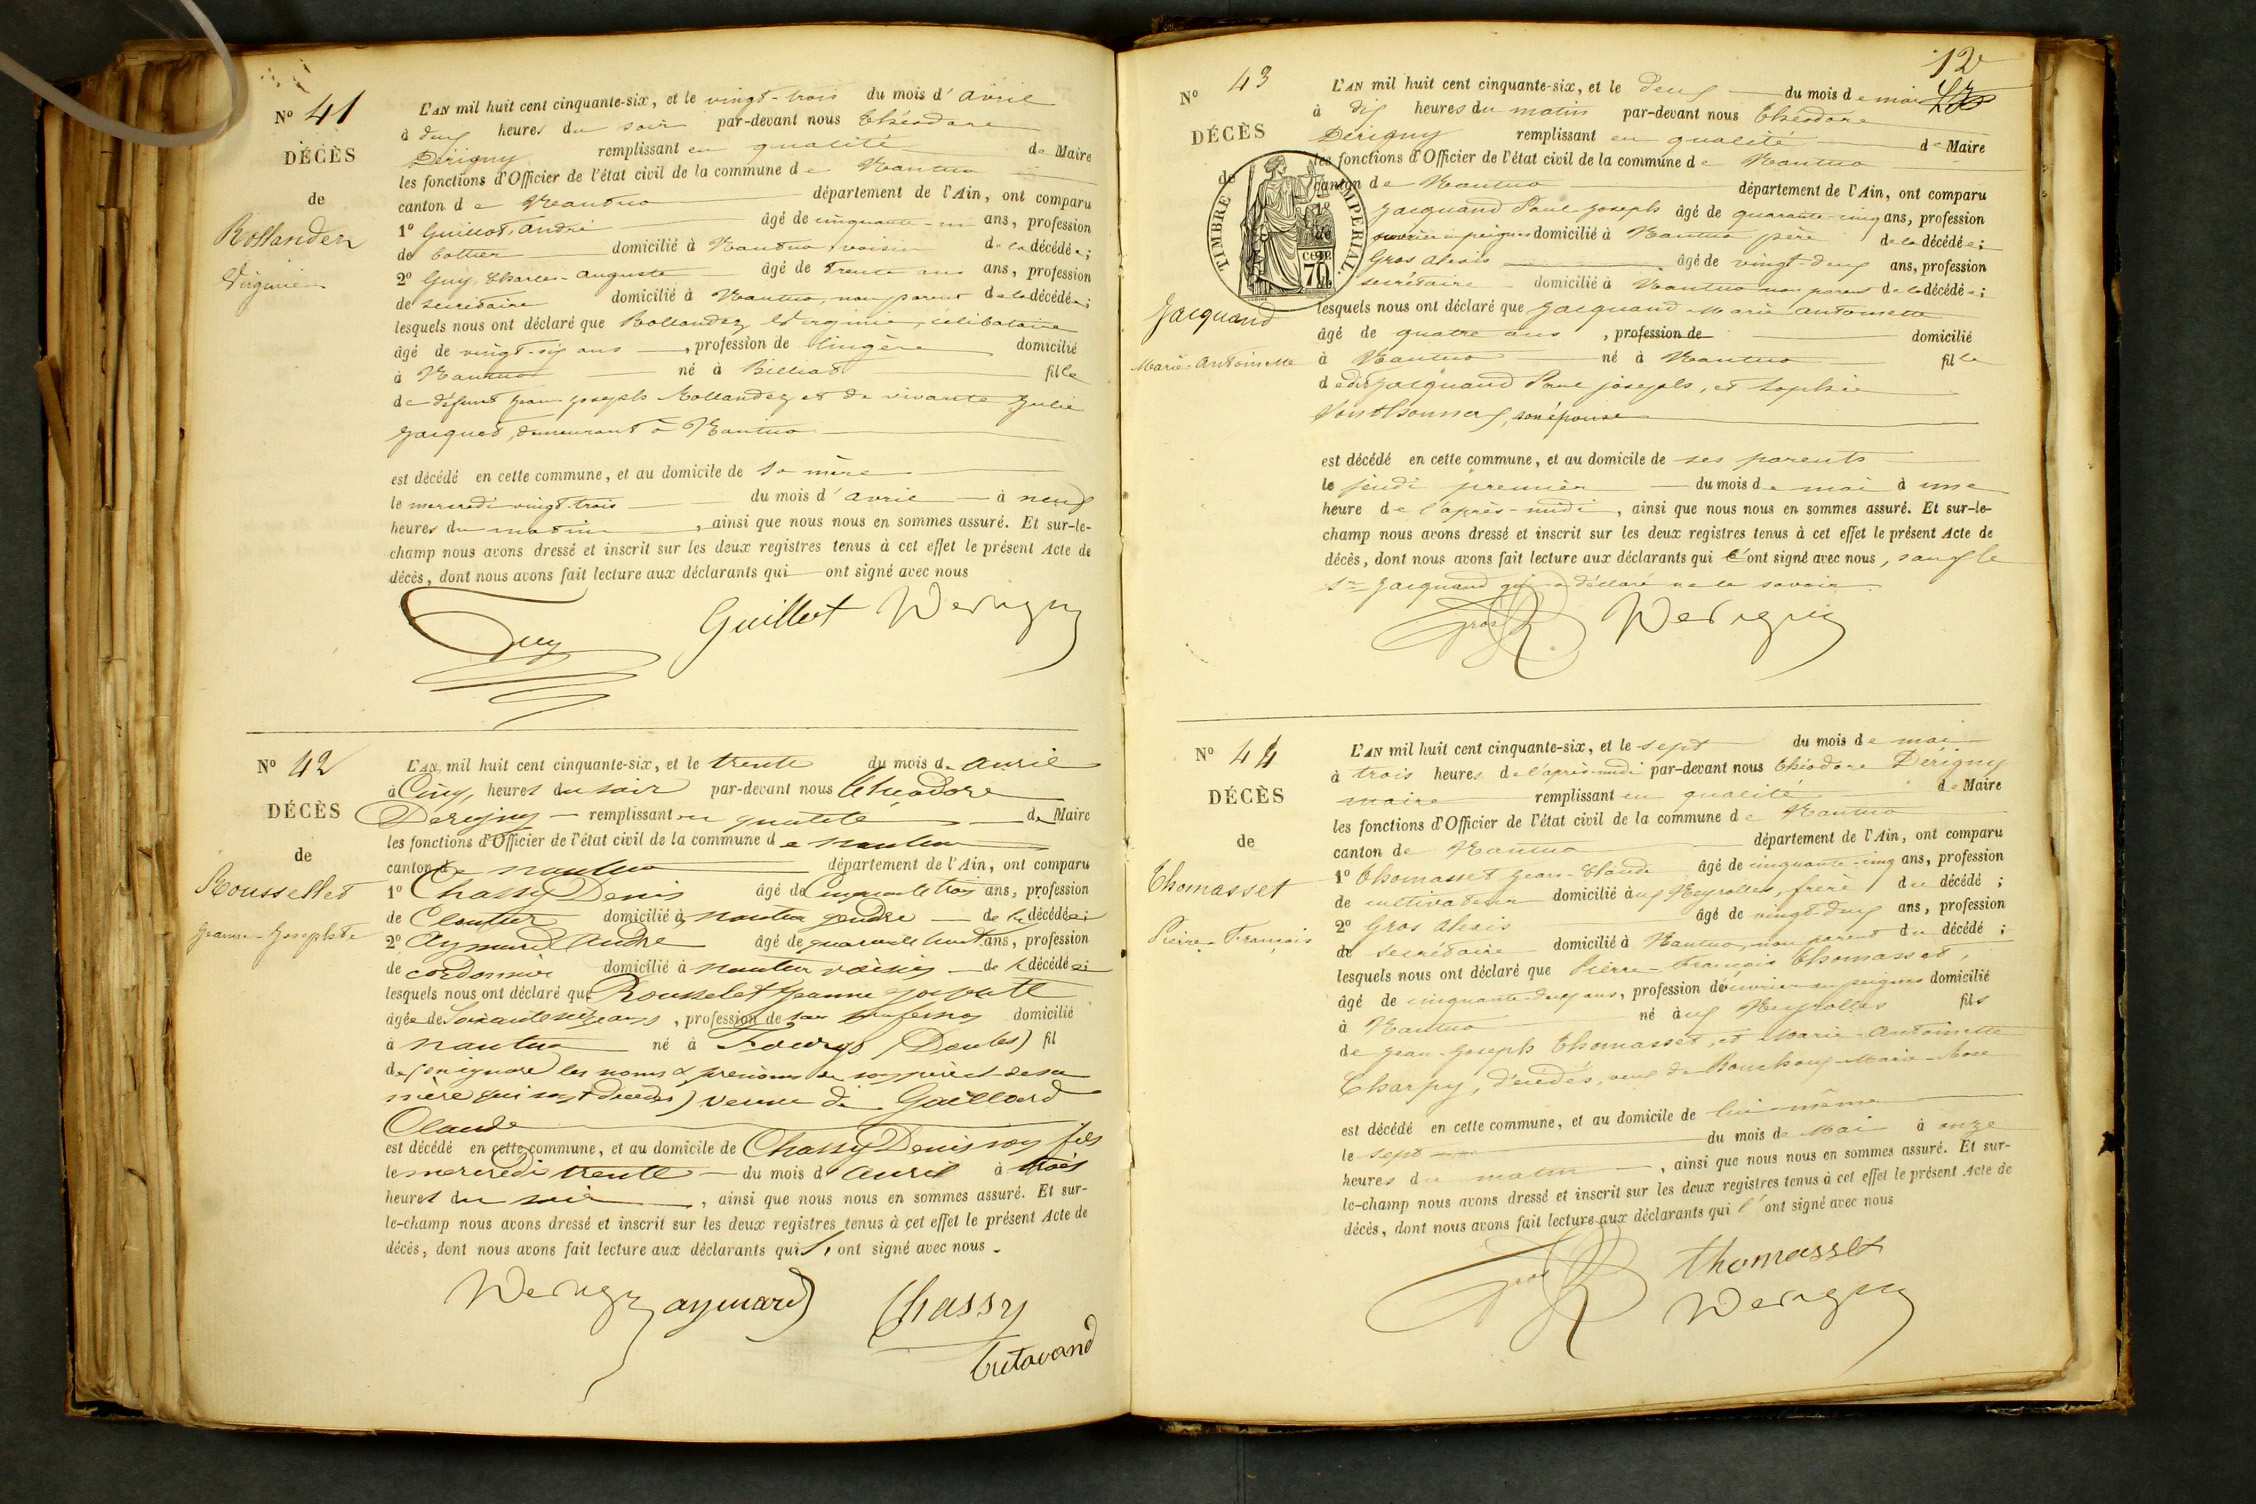 N° 41
DÉCÈS
de
Rollandez
Virginie
L'AN mil huit cent cinquante-six, et le vingt-trois du mois d'avril
à deux heures du soir par-devant nous Théodore
Dérigny remplissant en qualité de Maire
les fonctions d'Officier de l'état civil de la commune de Nantua
canton de Nantua département de l'Ain, ont comparu
1° Guillot, andré âgé de cinquante-un ans, profession
de bottier domicilié à Nantua, voisin de la décédée;
2° Guy, Charles-Auguste âgé de Trente ans ans, profession
de secrétaire domicilié à Nantua, non parent de la décédée;
lesquels nous ont déclaré que Rollandez Virginie, célibataire
âgé de vingt-six ans, profession de lingère domicilié
à Nantua né à Billiat fille
de défunt Jean Joseph Rollandez et de vivante Julie
Jacquet, demeurant à Nantua
est décédé en cette commune, et au domicile de sa mère
le mercredi vingt-trois du mois d'avril à neuf
heures du matin, ainsi que nous nous en sommes assuré. Et sur-le-
champ nous avons dressé et inscrit sur les deux registres tenus à cet effet le présent Acte de
décès, dont nous avons fait lecture aux déclarants qui ont signé avec nous
Guy Guillot Derigny
N° 42
DÉCÈS
de
Rousselet
Jeanne-Josephte
L'AN mil huit cent cinquante-six, et le trente du mois de avril
à Cinq heures du soir par-devant nous Théodore
Derigny remplissant en qualité de Maire
les fonctions d'Officier de l'état civil de la commune de nantua
canton de nantua département de l'Ain, ont comparu
1° Chassy Denis âgé de Cinquante trois ans, profession
de Cloutier domicilié à nantua gendre de la décédée;
2° Aymard André âgé de quarante huit ans, profession
de cordonnier domicilié à nantua voisin de la décédée;
lesquels nous ont déclaré que Rousselet Jeanne
âgée de Soixante ans, profession de domicilié
à nantua né à Fourgs (Doubs) fil
de (on ignore les noms & prénoms de son père et de sa
mère qui sont décédés) veuve de Gaillard
Claude
est décédé en cette commune, et au domicile de Chassy Denis son fils
le mercredi trente du mois d'avril à trois
heures du soir, ainsi que nous nous en sommes assuré. Et sur-
le-champ nous avons dressé et inscrit sur les deux registres tenus à cet effet le présent Acte de
décès, dont nous avons fait lecture aux déclarants qui l'ont signé avec nous.
Derigny aymard Chassy
12
N° 43
DÉCÈS
de
TIMBRE IMPÉRIAL
70 CENT
Jacquand
Marie-Antoinette
L'AN mil huit cent cinquante-six, et le deux du mois de mai
à dix heures du matin par-devant nous Théodore
Dérigny remplissant en qualité de Maire
les fonctions d'Officier de l'état civil de la commune de Nantua
canton de Nantua département de l'Ain, ont comparu
Jacquand Paul-Joseph âgé de quarante-cinq ans, profession
ouvrier en peignes domicilié à Nantua père de la décédée;
Gros Alexis âgé de vingt-deux ans, profession
secrétaire domicilié à Nantua non parent de la décédée;
lesquels nous ont déclaré que Jacquand Marie Antoinette
âgé de quatre ans, profession de domicilié
à Nantua né à Nantua fille
de dit Jacquand Paul joseph, et Sophie
, son épouse
est décédé en cette commune, et au domicile de ses parents
le jeudi premier du mois de mai à une
heure de l'après-midi, ainsi que nous nous en sommes assuré. Et sur-le-
champ nous avons dressé et inscrit sur les deux registres tenus à cet effet le présent Acte de
décès, dont nous avons fait lecture aux déclarants qui l'ont signé avec nous, sauf le
Sr Jacquand qui a déclaré ne le savoir.
Gros Derigny
N° 44
DÉCÈS
de
Thomasset
Pierre-François
L'AN mil huit cent cinquante-six, et le sept du mois de mai
à trois heures de l'après-midi par-devant nous Théodore Dérigny
maire remplissant en qualité de Maire
les fonctions d'Officier de l'état civil de la commune de Nantua
canton de Nantua département de l'Ain, ont comparu
1° Thomasset Jean-Claude âgé de cinquante-cinq ans, profession
de cultivateur domicilié aux Neyrolles, frère du décédé;
2° Gros Alexis âgé de vingt-deux ans, profession
de secrétaire domicilié à Nantua, non parent du décédé;
lesquels nous ont déclaré que Pierre-François Thomasset,
âgé de cinquante-deux ans, profession de ouvrier en peignes domicilié
à Nantua né aux Neyrolles fils
de Jean-Joseph Thomasset, et Marie-Antoinette
Charpy, décédés, veuf de Bouchoux Marie-Rose
est décédé en cette commune, et au domicile de lui-même
le sept du mois de Mai à onze
heures du matin, ainsi que nous nous en sommes assuré. Et sur-
le-champ nous avons dressé et inscrit sur les deux registres tenus à cet effet le présent Acte de
décès, dont nous avons fait lecture aux déclarants qui l'ont signé avec nous
Gros Thomasset
Derigny